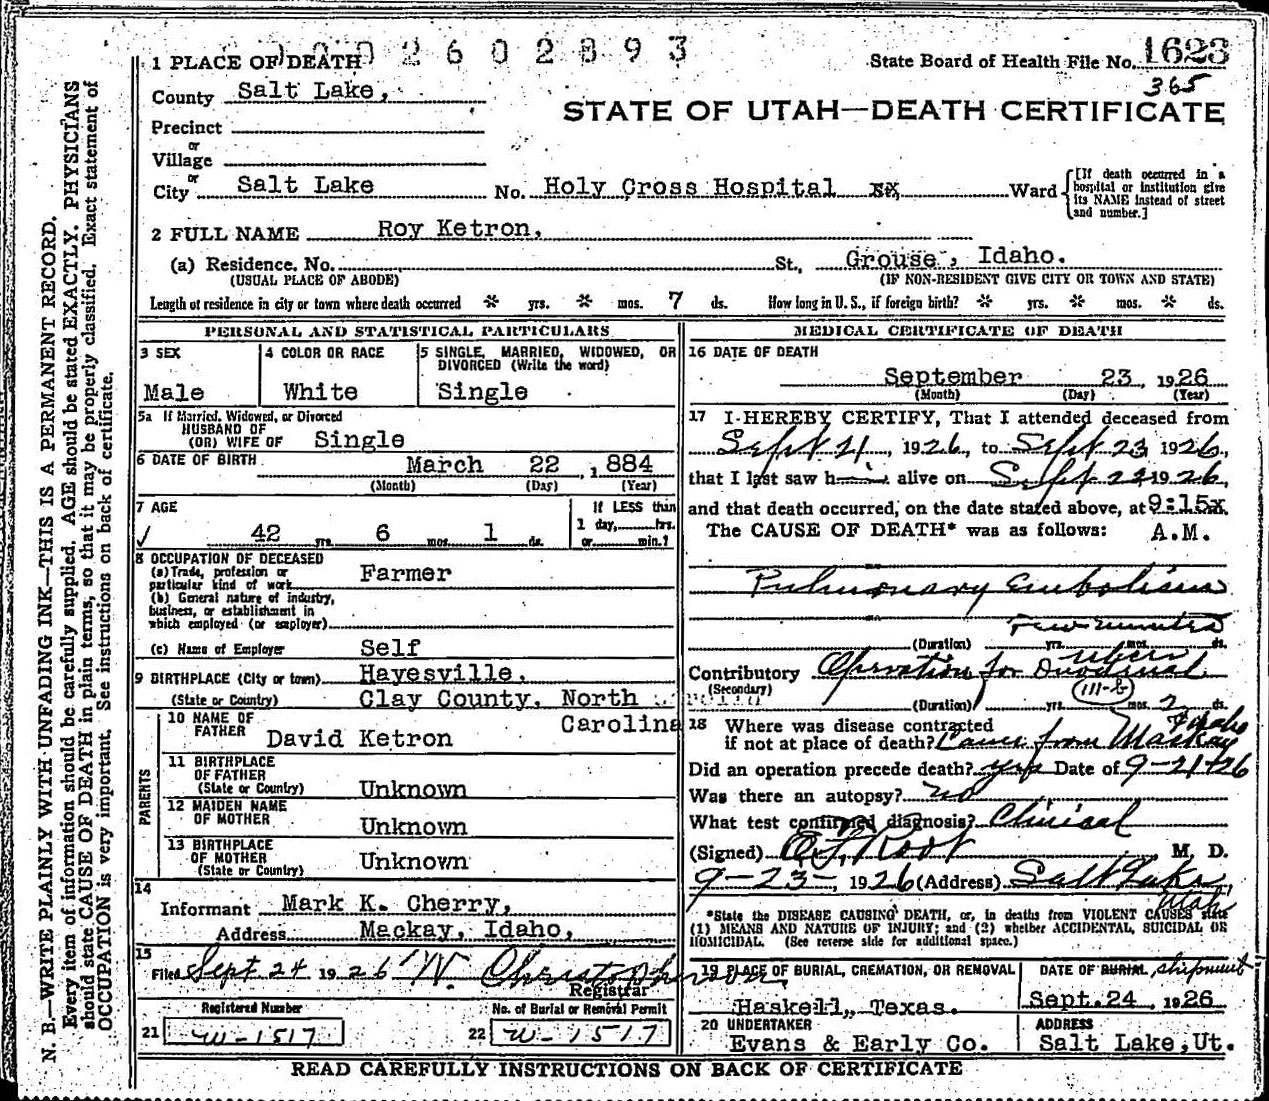 0002602893
1 PLACE OF DEATH
State Board of Health File No. 1623
365
County Salt Lake,
STATE OF UTAH—DEATH CERTIFICATE
Precinct
or
Village
or
City Salt Lake No. Holy Cross Hospital Ward
[If death occurred in a hospital or institution give its NAME instead of street and number.]
2 FULL NAME Roy Ketron,
(a) Residence. No. St., Grouse, Idaho.
(USUAL PLACE OF ABODE) (IF NON-RESIDENT GIVE CITY OR TOWN AND STATE)
Length of residence in city or town where death occurred * yrs. * mos. 7 ds. How long in U. S., if foreign birth? * yrs. * mos. * ds.
PERSONAL AND STATISTICAL PARTICULARS
3 SEX
Male
4 COLOR OR RACE
White
5 SINGLE, MARRIED, WIDOWED, OR DIVORCED (Write the word)
Single
5a If Married, Widowed, or Divorced
HUSBAND OF
(OR) WIFE OF Single
6 DATE OF BIRTH March 22, 1884
(Month) (Day) (Year)
7 AGE
✓ 42 yrs. 6 mos. 1 ds.
If LESS than
1 day, hrs.
or min.?
8 OCCUPATION OF DECEASED
(a) Trade, profession or
particular kind of work Farmer
(b) General nature of industry,
business, or establishment in
which employed (or employer)
(c) Name of Employer Self
9 BIRTHPLACE (City or town) Hayesville,
(State or Country) Clay County, North
Carolina
PARENTS
10 NAME OF
FATHER David Ketron
11 BIRTHPLACE
OF FATHER
(State or Country) Unknown
12 MAIDEN NAME
OF MOTHER Unknown
13 BIRTHPLACE
OF MOTHER
(State or Country) Unknown
14
Informant Mark K. Cherry,
Address Mackay, Idaho,
15
Filed Sept 24 1926 W. Christopherson
Registrar
Registered Number
21 W-1517
No. of Burial or Removal Permit
22 W-1517
MEDICAL CERTIFICATE OF DEATH
16 DATE OF DEATH
September 23, 1926
(Month) (Day) (Year)
17 I HEREBY CERTIFY, That I attended deceased from
Sept 21, 1926, to Sept 23 1926,
that I last saw h alive on Sept 23 1926,
and that death occurred, on the date stated above, at 9:15
The CAUSE OF DEATH* was as follows: A.M.
Pulmonary Embolism
Few minutes
(Duration) yrs. mos. ds.
Contributory Operation for Duodenal ulcer
(Secondary)
(111-b)
(Duration) yrs. mos. 2 ds.
18 Where was disease contracted
if not at place of death? Came from Mackay Idaho
Did an operation precede death? yes Date of 9-21-26
Was there an autopsy? no
What test confirmed diagnosis? Clinical
(Signed) Root M. D.
9-23-, 1926 (Address) Salt Lake, Utah
*State the DISEASE CAUSING DEATH, or, in deaths from VIOLENT CAUSES state
(1) MEANS AND NATURE OF INJURY; and (2) whether ACCIDENTAL, SUICIDAL OR
HOMICIDAL. (See reverse side for additional space.)
19 PLACE OF BURIAL, CREMATION, OR REMOVAL
Haskell, Texas.
DATE OF BURIAL shipment
Sept. 24, 1926
20 UNDERTAKER
Evans & Early Co.
ADDRESS
Salt Lake, Ut.
READ CAREFULLY INSTRUCTIONS ON BACK OF CERTIFICATE
N. B.—WRITE PLAINLY WITH UNFADING INK—THIS IS A PERMANENT RECORD.
Every item of information should be carefully supplied. AGE should be stated EXACTLY. PHYSICIANS
should state CAUSE OF DEATH in plain terms, so that it may be properly classified. Exact statement of
OCCUPATION is very important. See instructions on back of certificate.